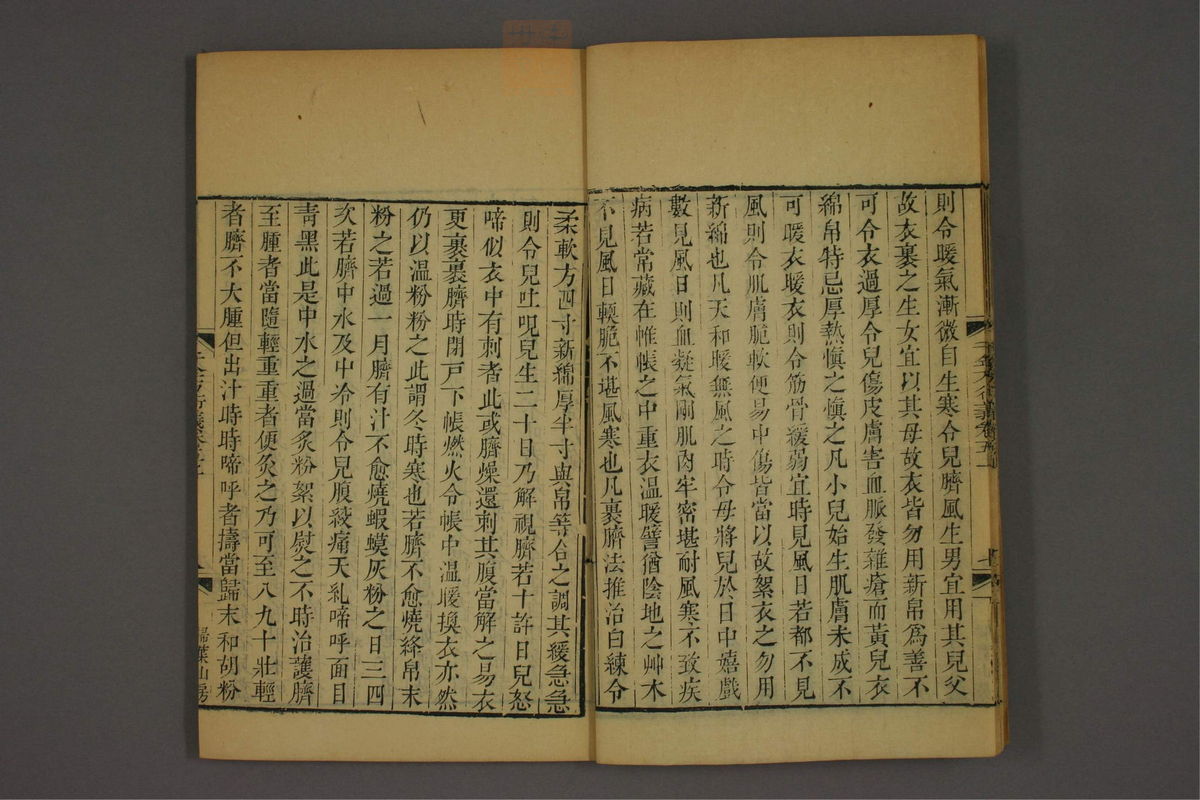 則令暖氣漸微自生寒令兒臍風生男宜用其兒父
故衣裹之生女宜以其母故衣皆勿用新帛爲善不
可令衣過厚令兒傷皮膚害血脈發雜瘡而黃兒衣
綿帛特忌厚熱愼之愼之凡小兒始生肌膚未成不
可暖衣暖衣則令筋骨緩弱宜時見風日若都不見
風則令肌膚脆軟便易中傷皆當以故絮衣之勿用
新綿也凡天和暖無風之時令母將兒於日中嬉戲
數見風日則血凝氣剛肌肉牢密堪耐風寒不致疾
病若常藏在帷帳之中重衣溫暖譬猶陰地之艸木
不見風日軟脆不堪風寒也凡裹臍法推治白練令
柔軟方四寸新綿厚半寸與帛等合之調其緩急急
則令兒吐哯兒生二十日乃解視臍若十許日兒怒
啼似衣中有刺者此或臍燥還刺其腹當解之易衣
更裹裹臍時閉戸下帳燃火令帳中溫暖換衣亦然
仍以溫粉粉之此謂冬時寒也若臍不愈燒絳帛末
粉之若過一月臍有汁不愈燒蝦蟆灰粉之日三四
次若臍中水及中冷則令兒腹絞痛夭糺啼呼面目
靑黑此是中水之過當炙粉絮以熨之不時治護臍
至腫者當隨輕重重者便灸之乃可至八九十壯輕
者臍不大腫但出汁時時啼呼者擣當歸末和胡粉
掃葉山房